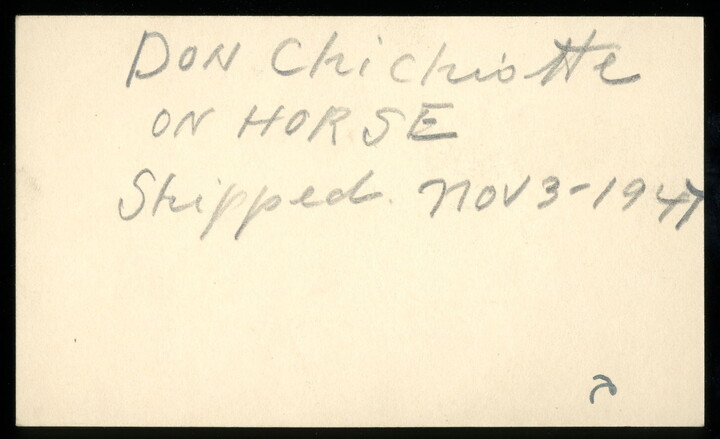 DON Chichiotte
ON HORSE
Shipped. NOV 3-1947